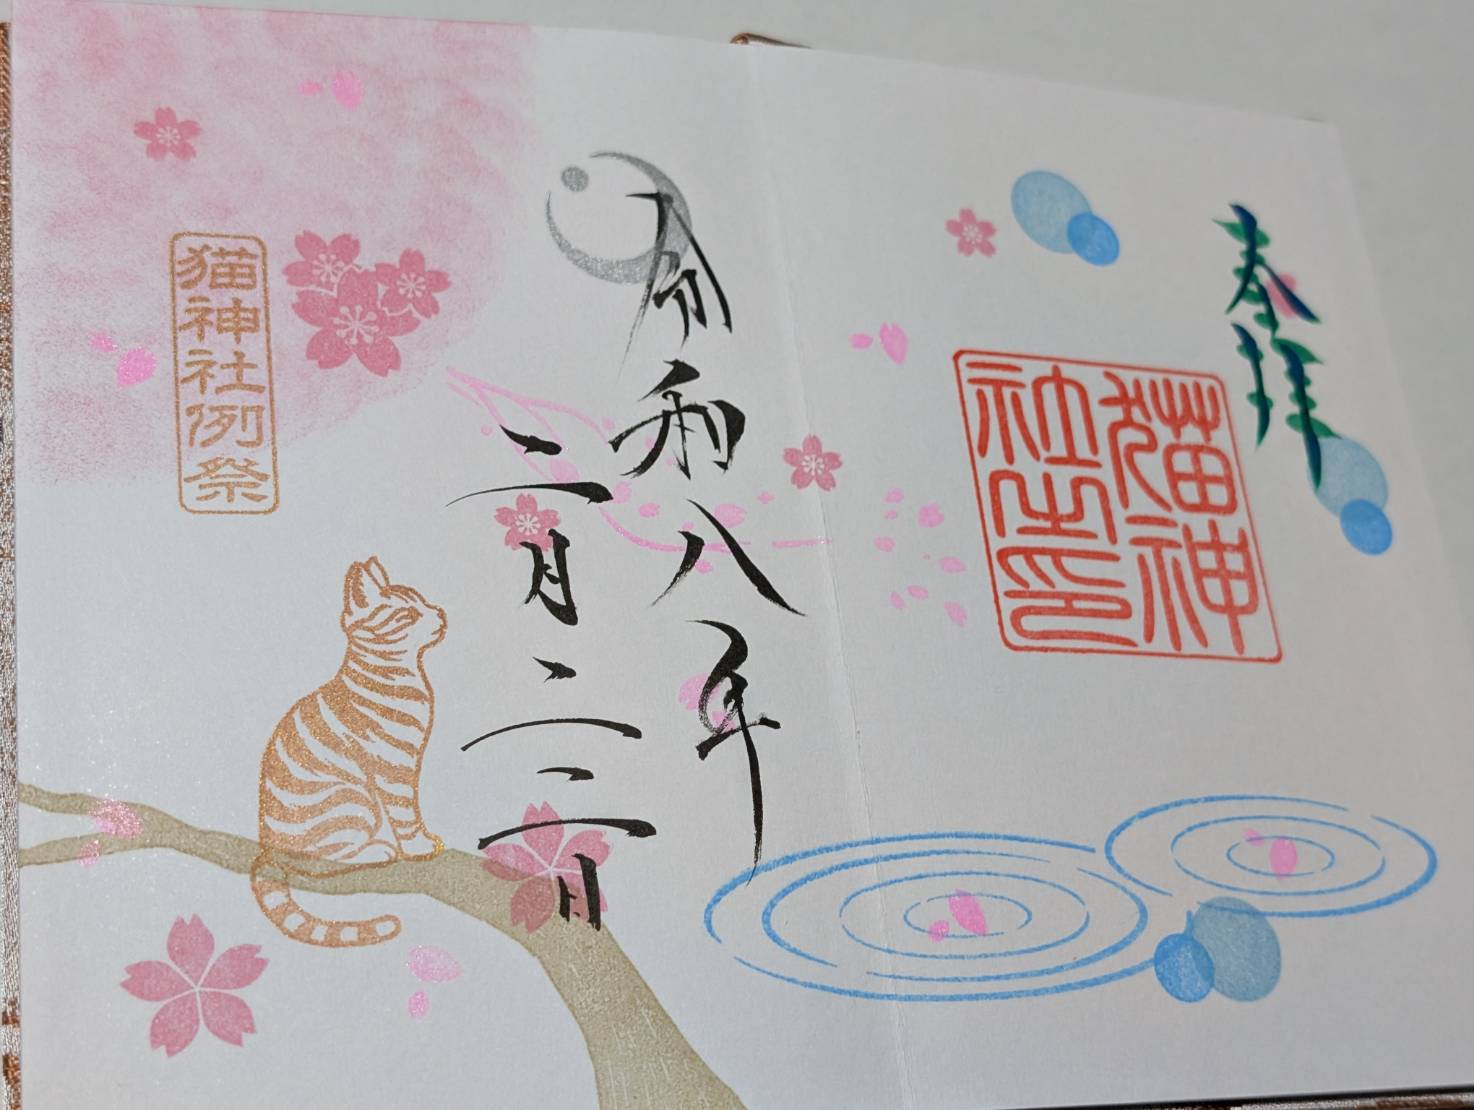 奉拝
猫神
社之印
令和八年
二月二二日
猫神社例祭